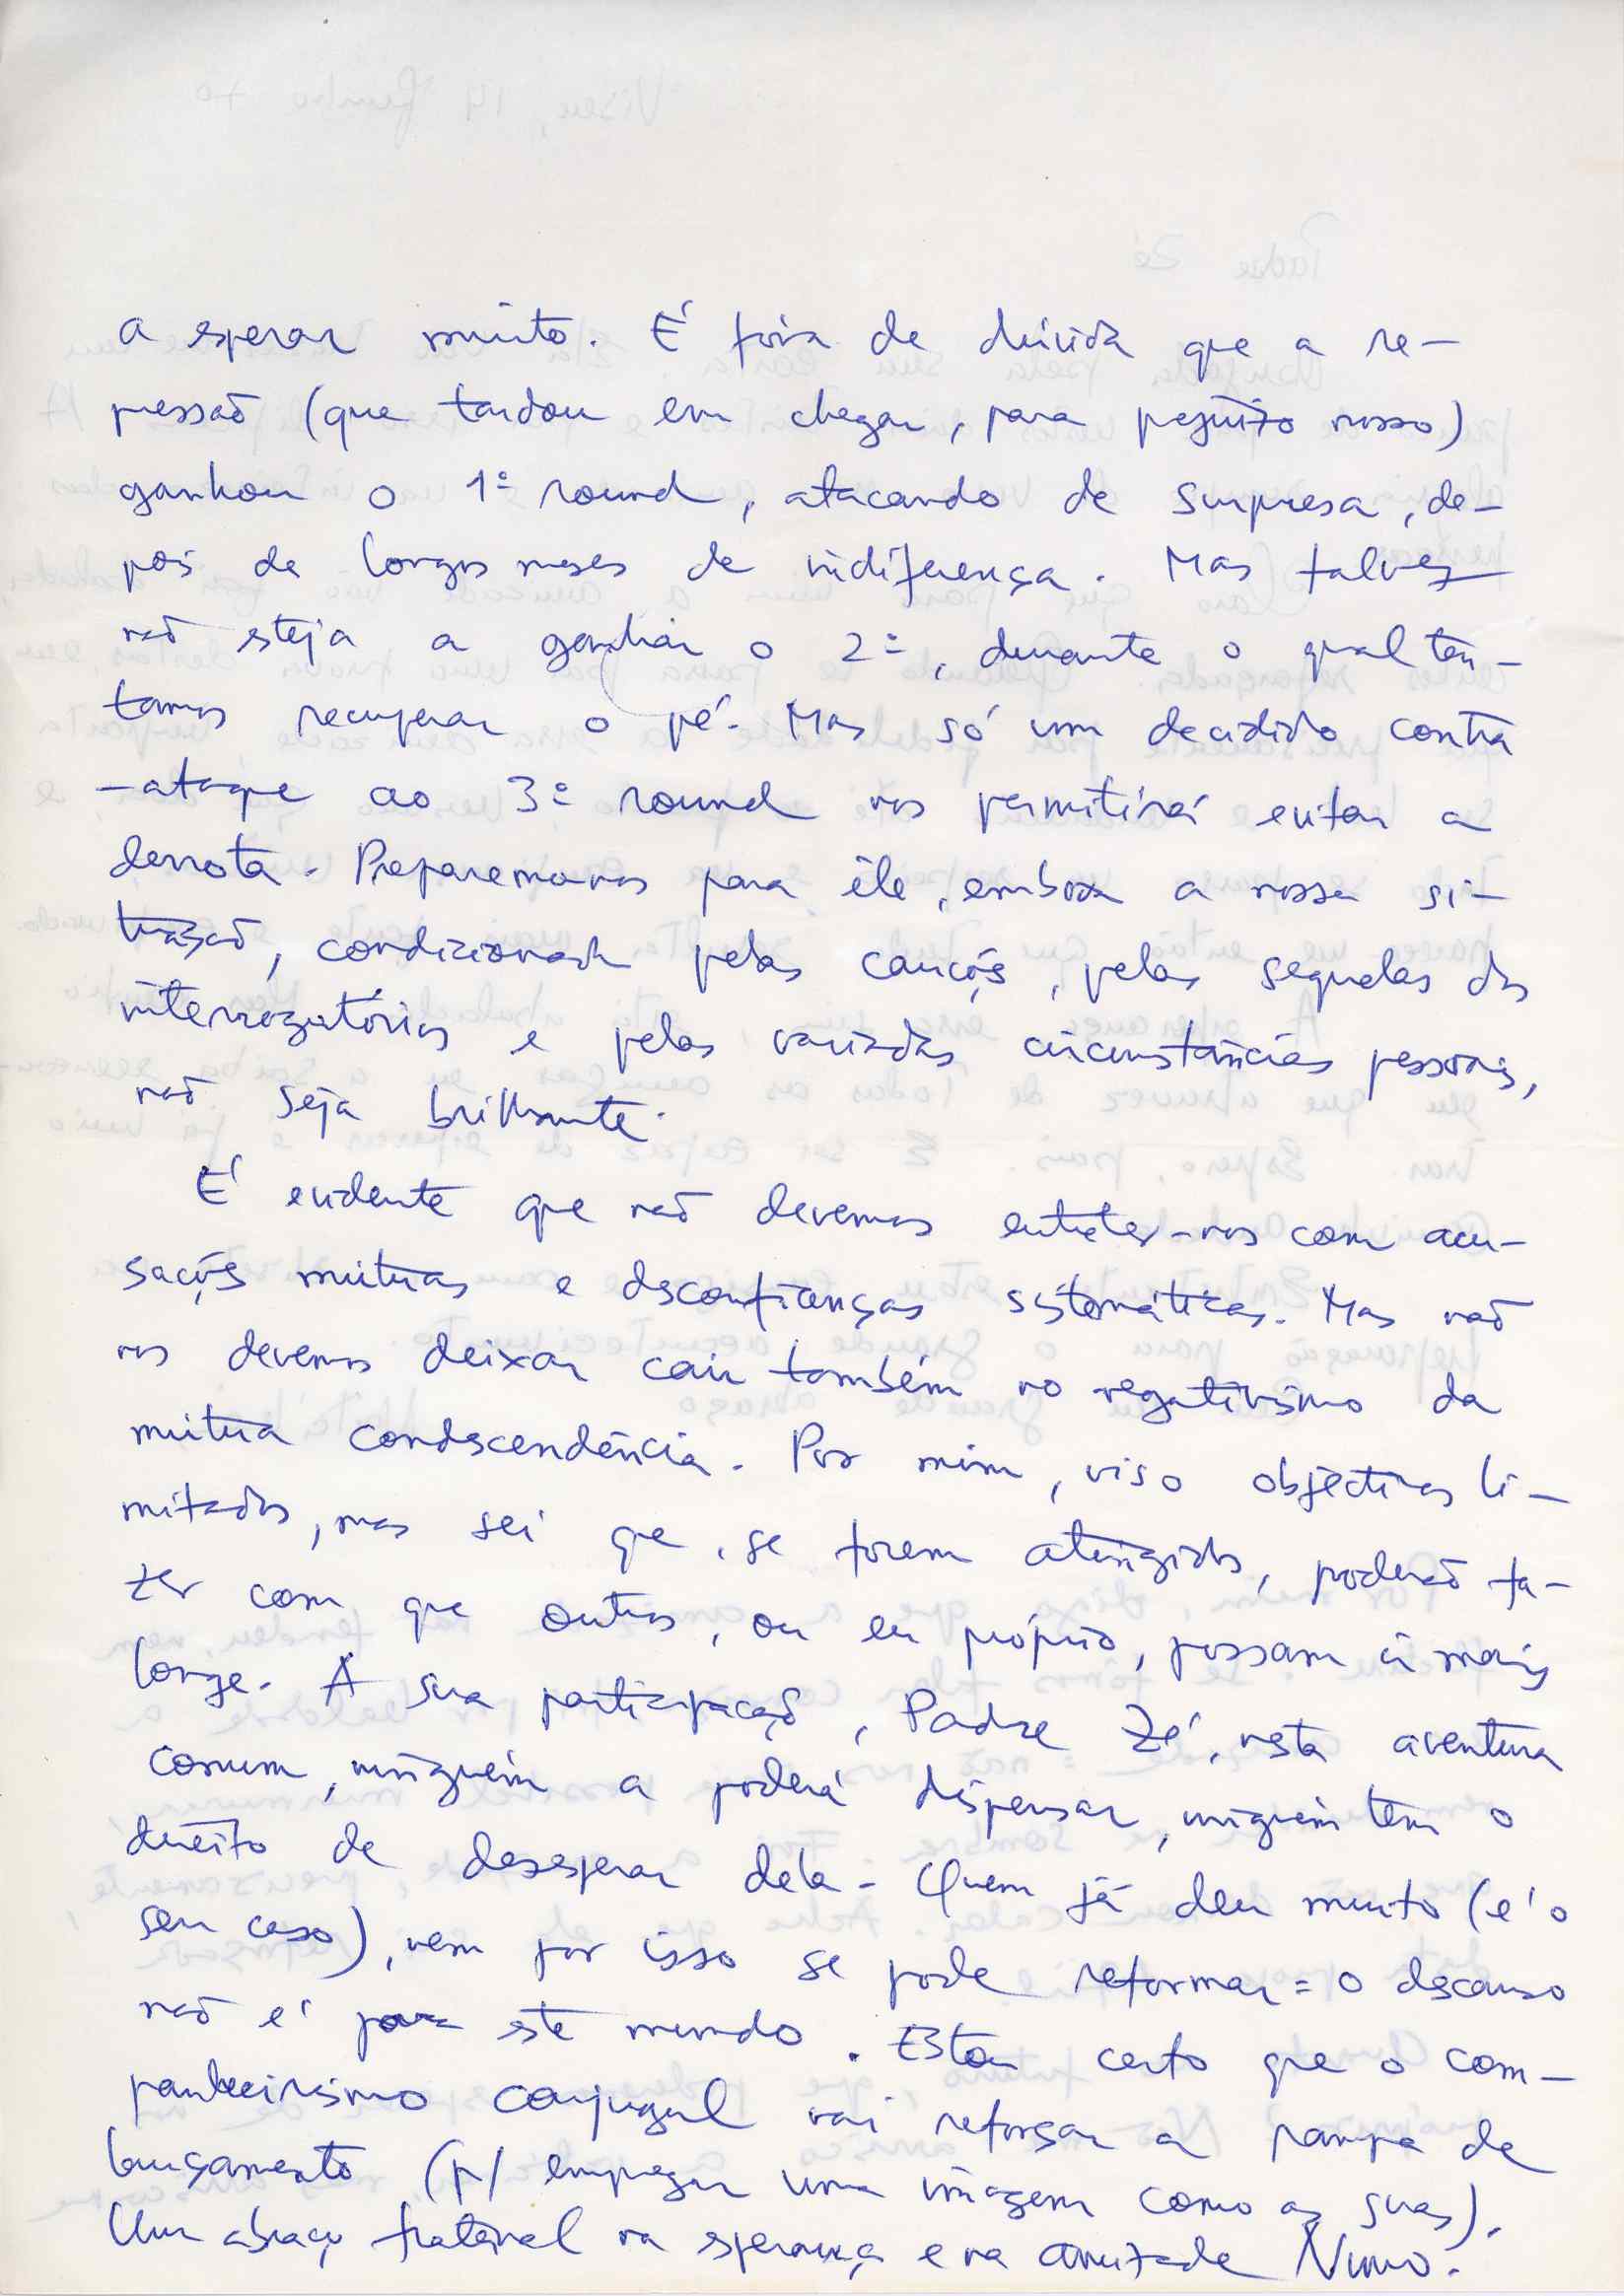 a esperar muito. É fora de dúvida que a re-
pressão (que tardou em chegar, para prejuízo nosso)
ganhou o 1º round, atacando de surpresa, de-
pois de longos meses de indiferença. Mas talvez
não esteja a ganhar o 2º, durante o qual ten-
tamos recuperar o pé. Mas só um decidido contra
-ataque ao 3º round nos permitirá evitar a
derrota. Preparemo-nos para êle, embora a nossa si-
tuação, condicionada pelas cauções, pelas sequelas dos
interrogatórios e pelas variadas circunstâncias pessoais,
não seja brilhante.
É evidente que não devemos entreter-nos com acu-
sações mútuas e desconfianças sistemáticas. Mas não
nos devemos deixar cair também no negativismo da
mútua condescendência. Por mim, viso objectivos li-
mitados, mas sei que, se forem atingidos, poderão fa-
zer com que outros, ou eu próprio, possam ir mais
longe. A sua participação, Padre Zé, nesta aventura
comum, ninguém a poderá dispensar, ninguém tem o
direito de desesperar dela. Quem já deu muito (é o
seu caso), nem por isso se pode reformar: o descanso
não é para este mundo. Estou certo que o com-
panheirismo conjugal vai reforçar a rampa de
lançamento (p/ empregar uma imagem como as suas).
Um abraço fraternal na esperança e na amizade Nuno.